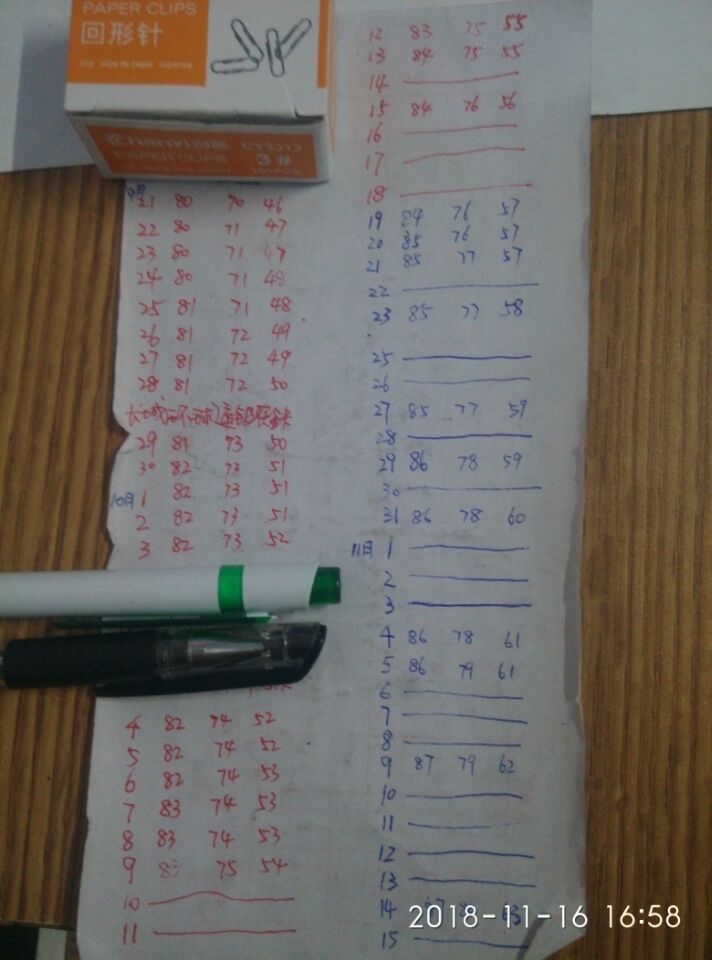 PAPER CLIPS
回形针
Chanyi CY3313
PAPER CLIPS 3#
100PCS
9月
21 80 70 46
22 80 71 47
23 80 71 47
24 80 71 48
25 81 71 48
26 81 72 49
27 81 72 49
28 81 72 50
29 81 73 50
30 82 73 51
10月 1 82 73 51
2 82 73 51
3 82 73 52
4 82 74 52
5 82 74 52
6 82 74 53
7 83 74 53
8 83 74 53
9 83 75 54
10
11
12 83 75 55
13 84 75 55
14
15 84 76 56
16
17
18
19 84 76 57
20 85 76 57
21 85 77 57
22
23 85 77 58
25
26
27 85 77 59
28
29 86 78 59
30
31 86 78 60
11月 1
2
3
4 86 78 61
5 86 79 61
6
7
8
9 87 79 62
10
11
12
13
14 87
15
2018-11-16 16:58